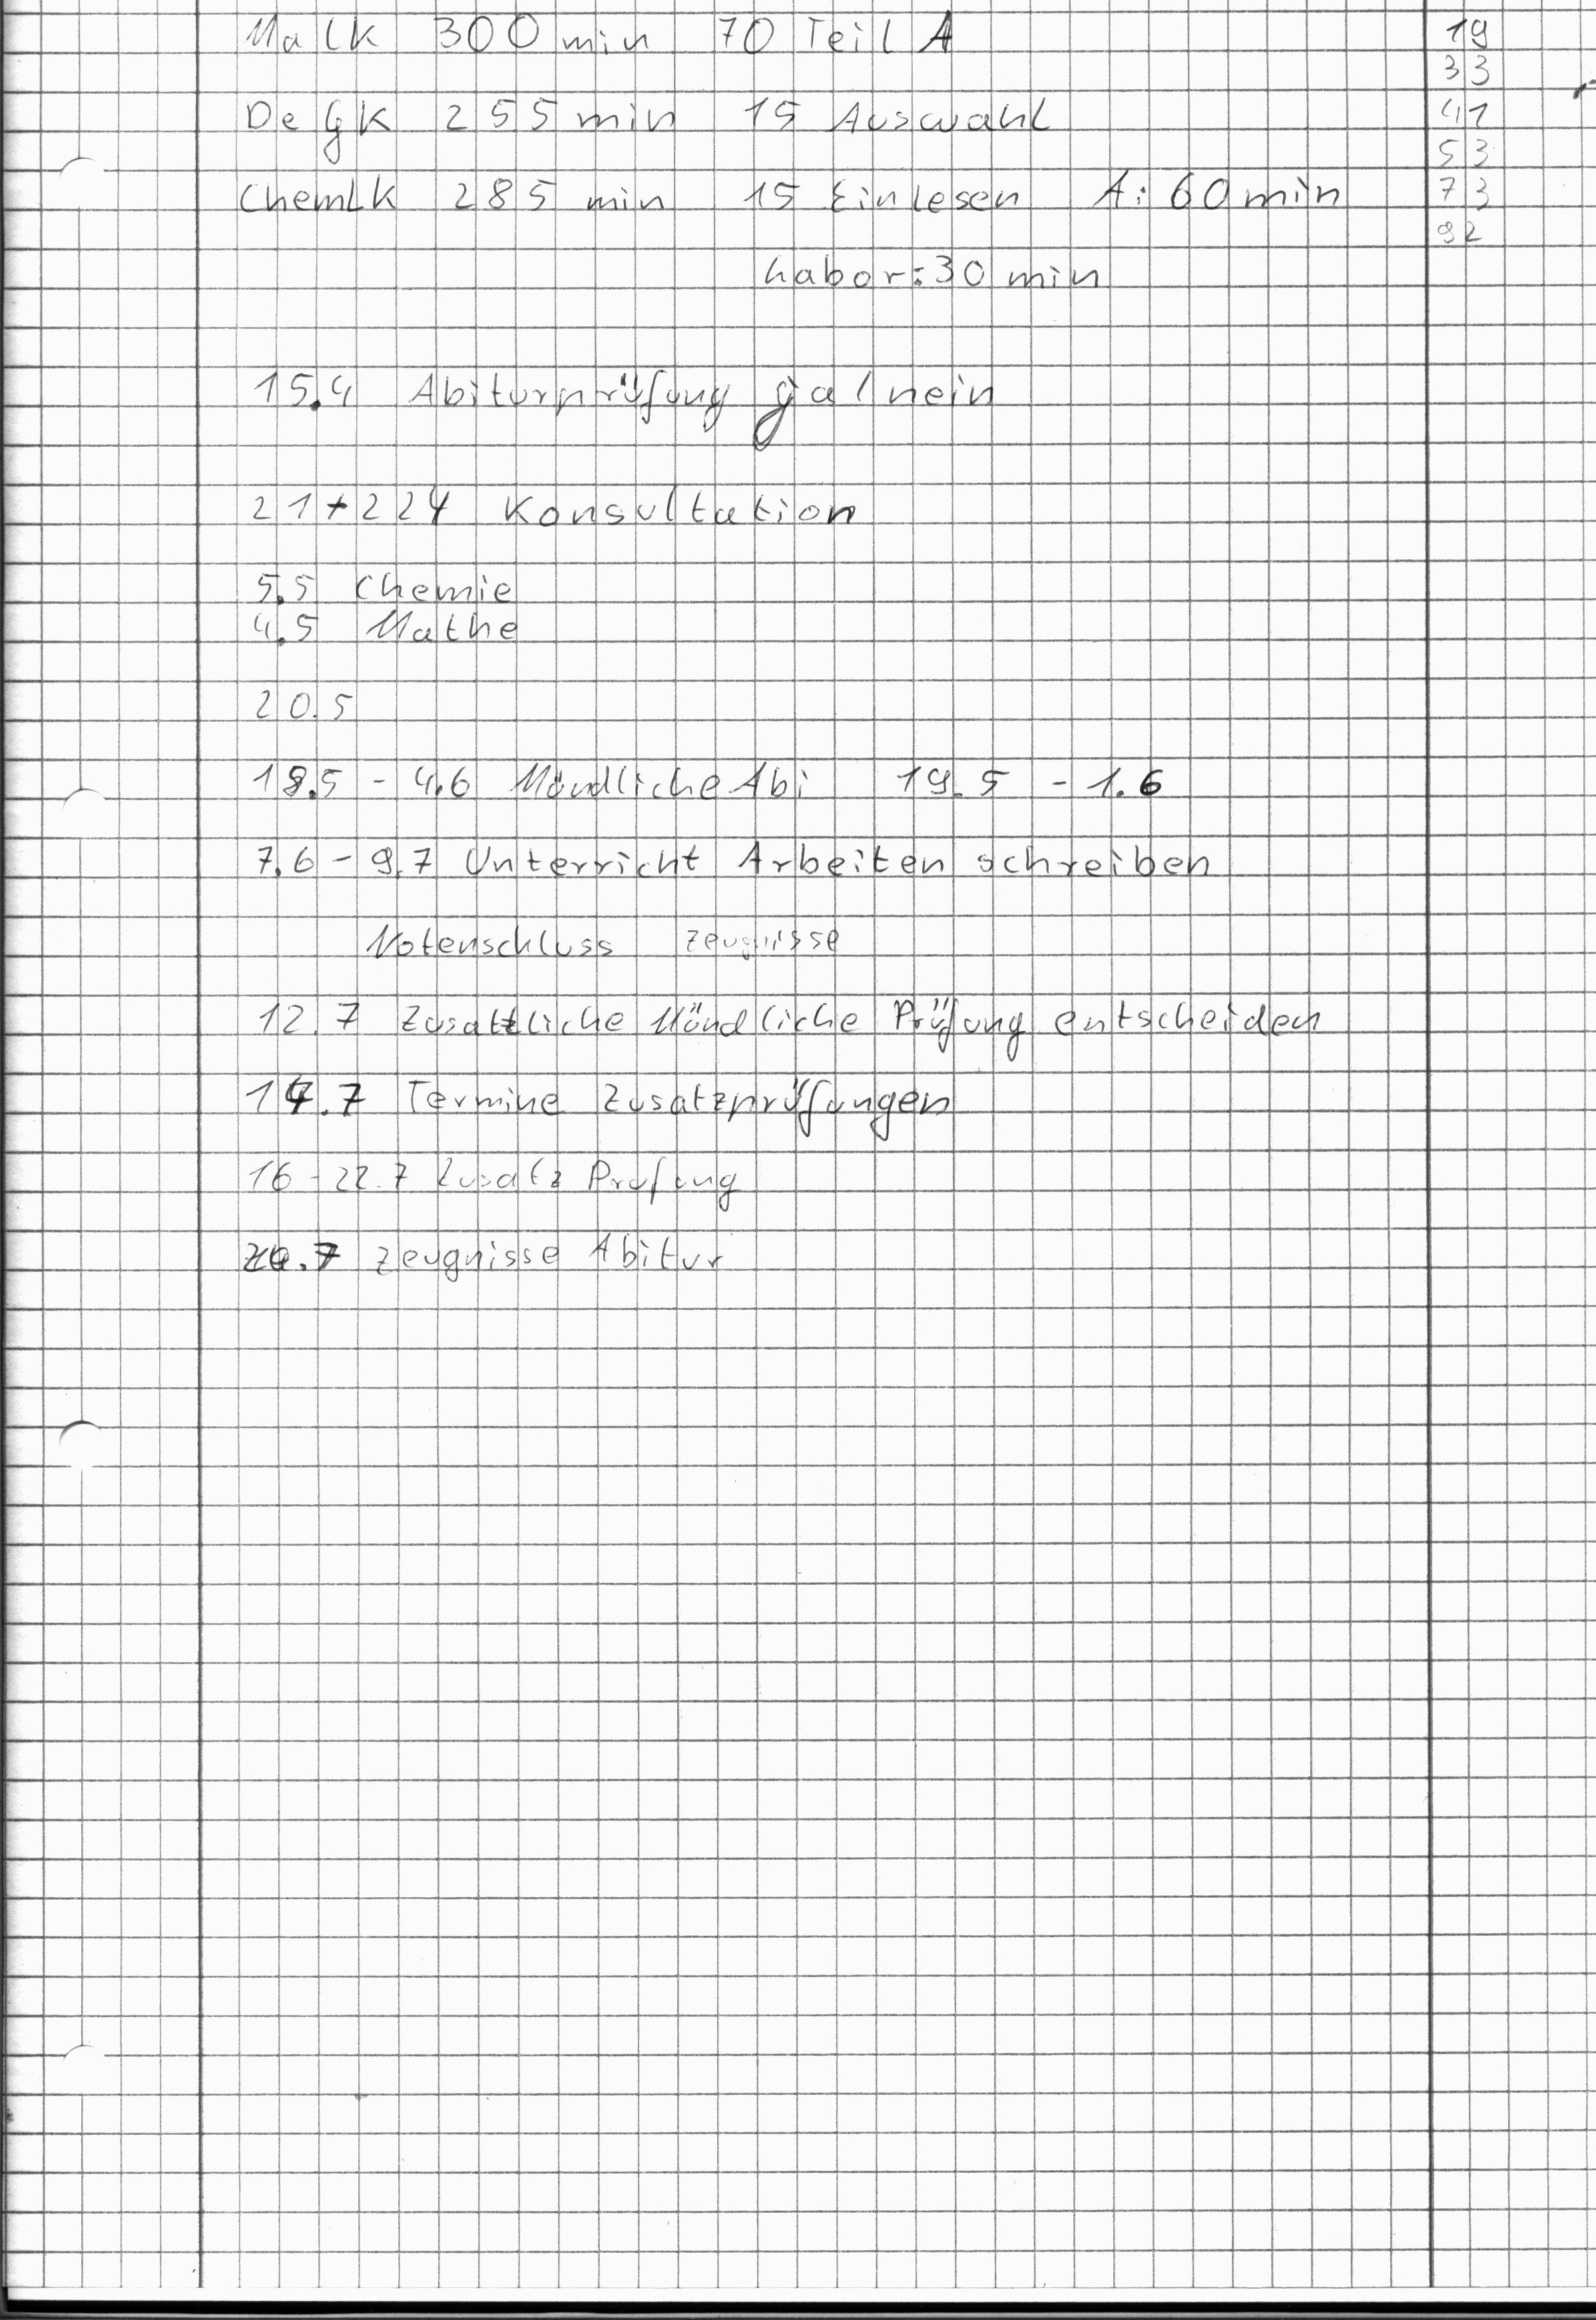 Ma LK 300 min 70 Teil A
De GK 255 min 15 Auswahl
Chem LK 285 min 15 Einlesen A: 60 min
Labor: 30 min
15.4 Abiturprüfung ja/nein
21+22 4 Konsultation
5.5 Chemie
4.5 Mathe
20.5
18.5 - 4.6 Mündliche Abi 19.5 - 1.6
7.6 - 9.7 Unterricht Arbeiten schreiben
Notenschluss Zeugnisse
12.7 Zusatzliche Mündliche Prüfung entscheiden
14.7 Termine Zusatzprüfungen
16 - 22.7 Zusatz Prufung
.7 Zeugnisse Abitur
19
33
41
53
73
92